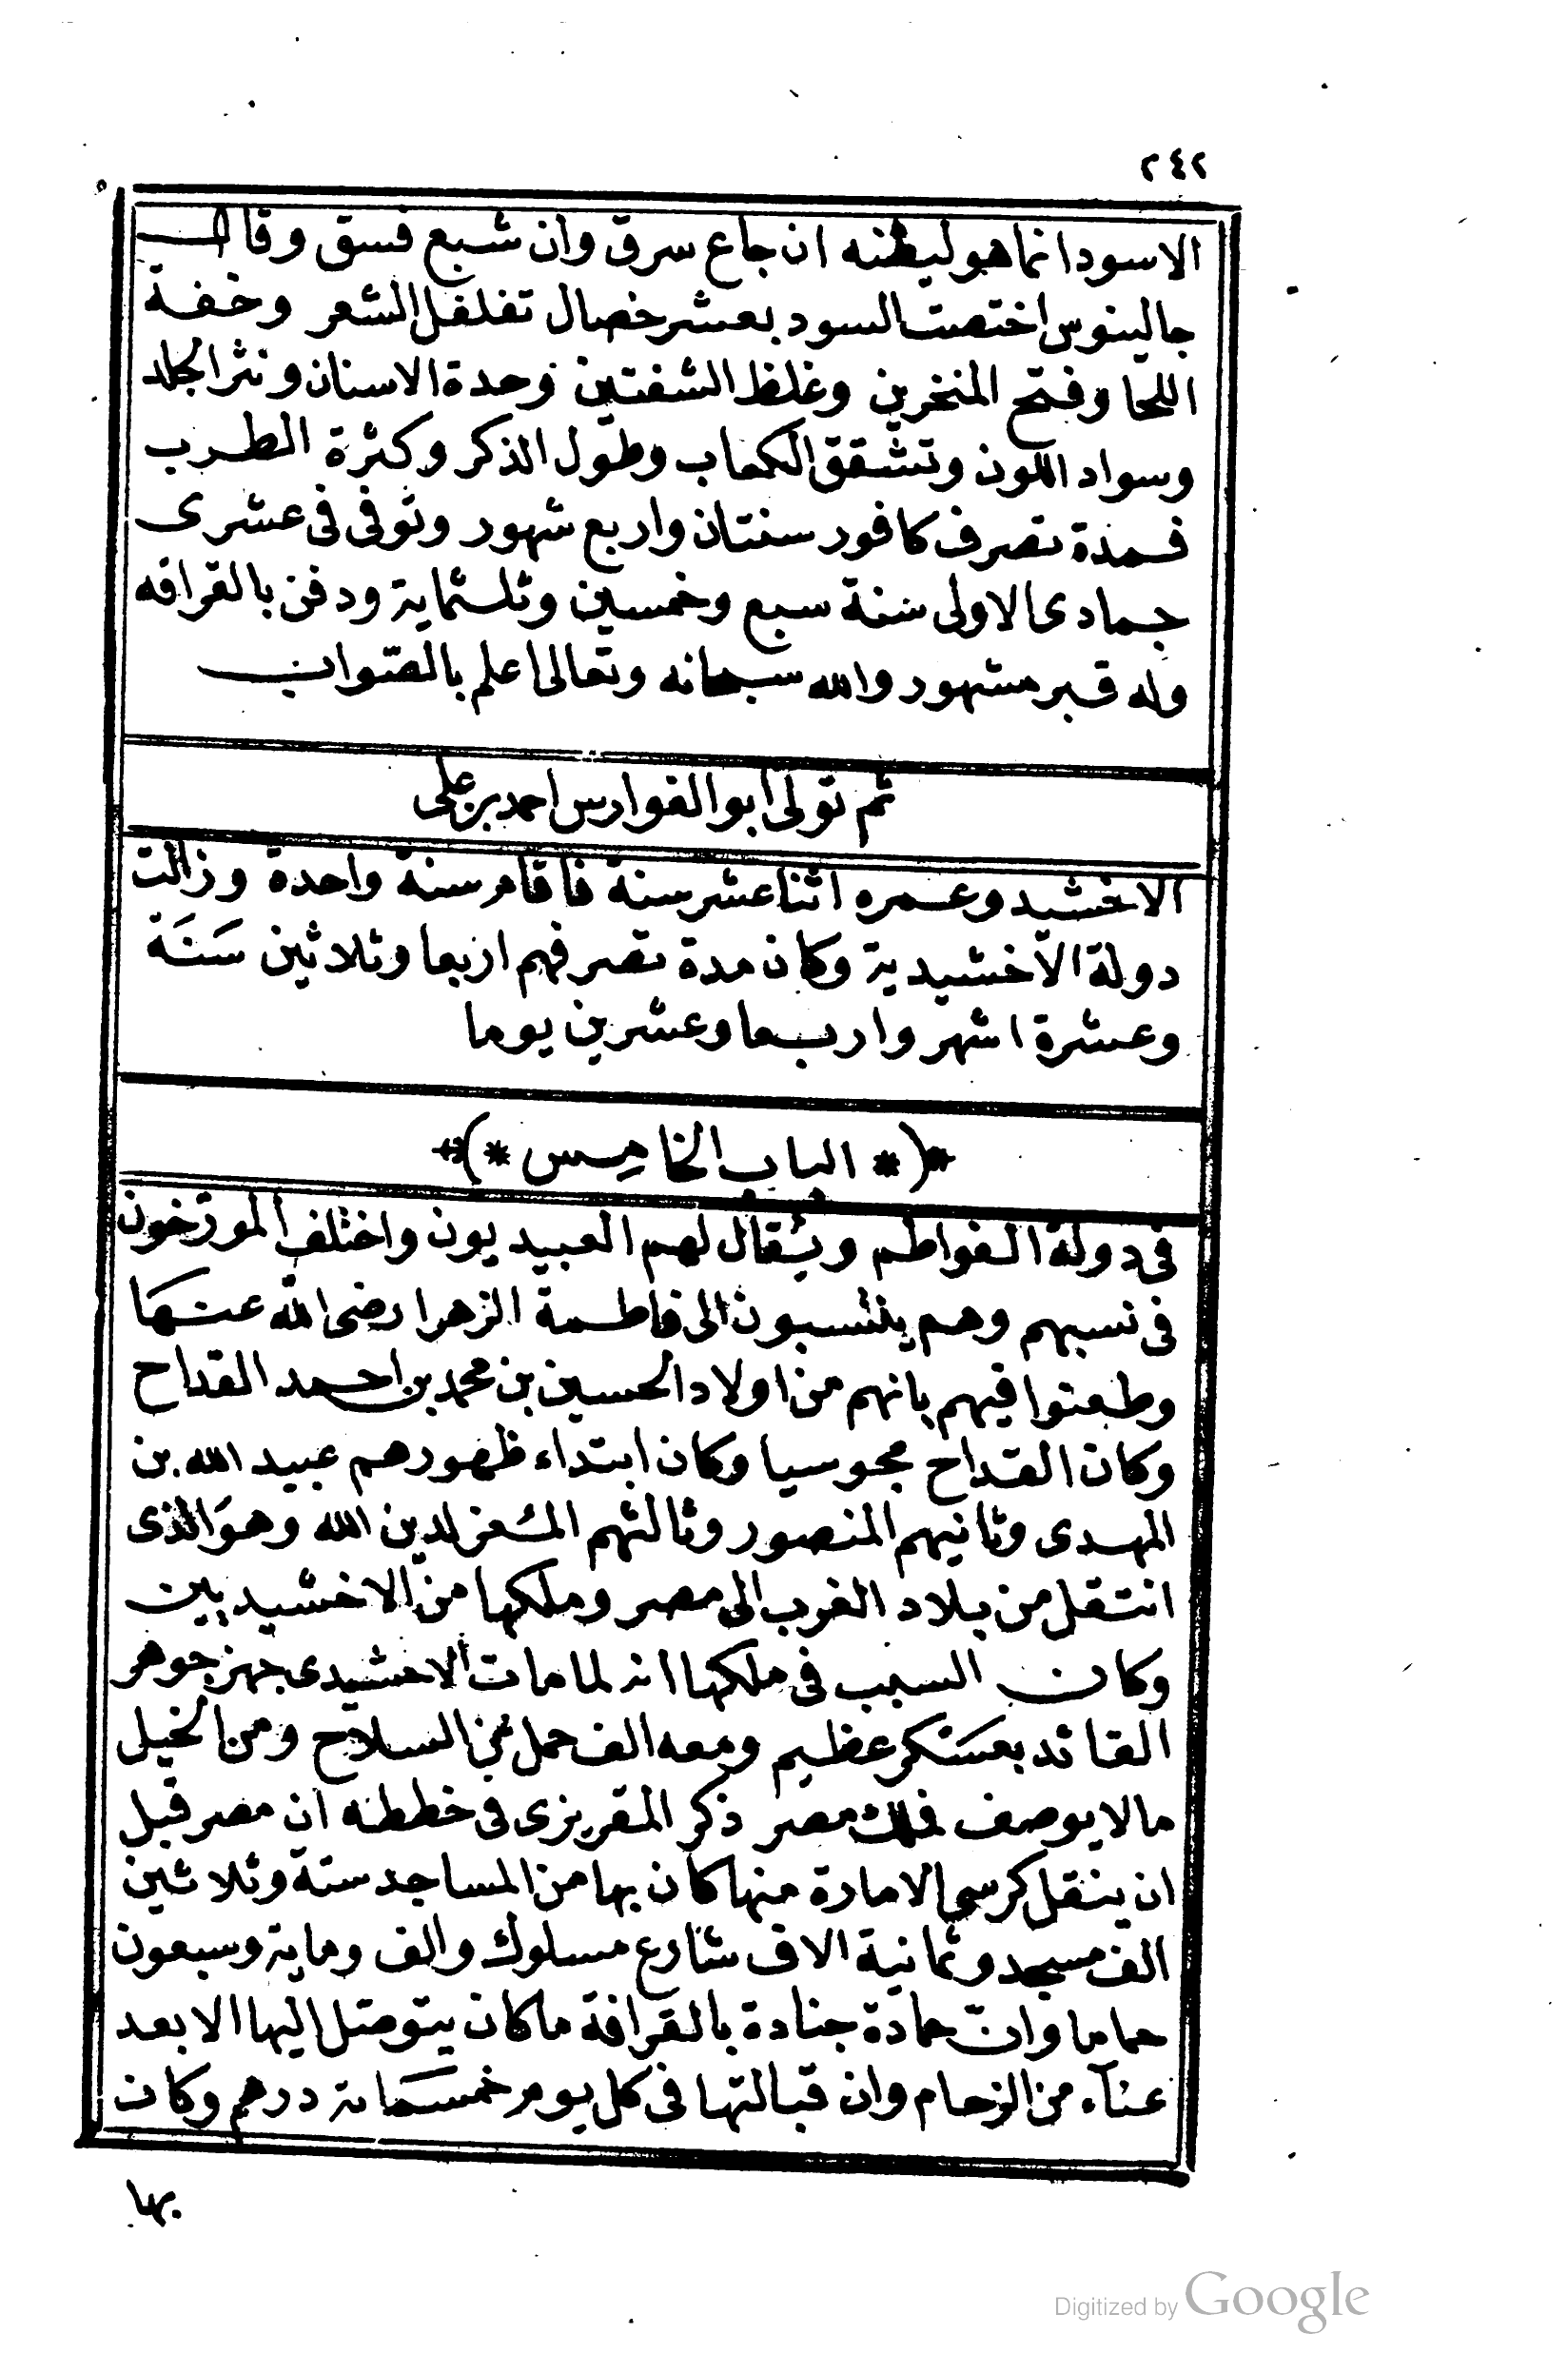 ٢٤٢
الاسود انما هو لبطنه ان جاع سرق وان شبع فسق وقال
جالينوس اختصت السود بعشر خصال تفلفل الشعر وخفة
اللحا وفتح المنخرين وغلظ الشفتين وحدة الاسنان ونثر الجلد
وسواد اللون وتشقق الكعاب وطول الذكر وكثرة الطرب
فمدة تصرف كافور سنتان واربع شهور وتوفى فى عشرى
جمادى الاولى سنة سبع وخمسين وثلثماية ودفن بالقرافه
وله قبر مشهور والله سبحانه وتعالى اعلم بالصواب
ثم تولى ابو الفوارس احمد بن على
الاخشيد وعمره اثنا عشر سنة فاقام سنة واحدة وزالت
دولة الاخشيدية وكان مدة تصرفهم اربعا وثلاثين سَنَة
وعشرة اشهر واربعا وعشرين يوما
*(* الباب الخامس *)*
فى دولة الفواطم ويُقال لهم العبيديون واختلف المورّخون
فى نسبهم وهم ينتسبون الى فاطمة الزهرا رضى الله عنهَا
وطعنوا فيهم بانهم من اولاد الحسين بن محمد بن احمد القداح
وكان القداح مجوسيا وكان ابتداء ظهورهم عبيد الله بن
المهدى وثانيهم المنصور وثالثهم المُعز لدين الله وهوَ الذى
انتقل من بلاد الغرب الى مصر وملكها من الاخشيديين
وكان السبب فى ملكها انه لما مات الاخشيدى جهز جوهر
القائد بعسَكر عظيم ومعه الف حمل من السلاح ومن الخيل
مالا يوصف فملك مصر ذكر المقريزى فى خططه ان مصر قبل
ان ينقل كرسى الامارة منها كان بها من المساجد ستة وثلاثين
الف مسجد وثمانية الاف شارع مسلوك والف وماية وسبعون
حماما وانّ حمادة جنادة بالقرافة ما كان يتوصّل اليها الا بعد
عنآء من الزحام وان قبالتها فى كل يوم خمسَماية درهم وكان
بها
Digitized by Google